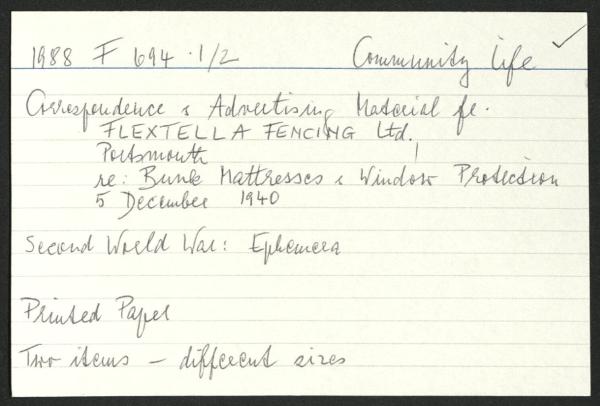 1988 F 694 · 1/2 Community Life ✓
Correspondence & Advertising Material fr.
FLEXTELLA FENCING Ltd.
Portsmouth
re: Bunk Mattresses & Window Protection
5 December 1940
Second World War: Ephemera
Printed Paper
Two items – different sizes